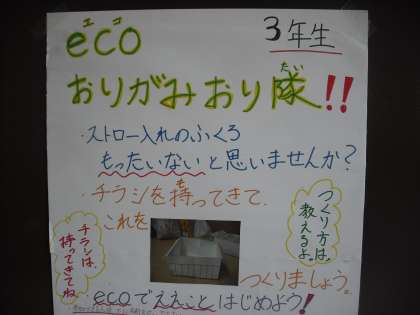 3年生
エコ
eco
おりがみおり隊!!
たい
・ストロー入れのふくろ
もったいないと思いませんか?
・チラシを持ってきて
も
これを
つくりましょう。
つくり方は、
教えるよ。
チラシは、
持ってきてね
ecoでええことはじめよう!